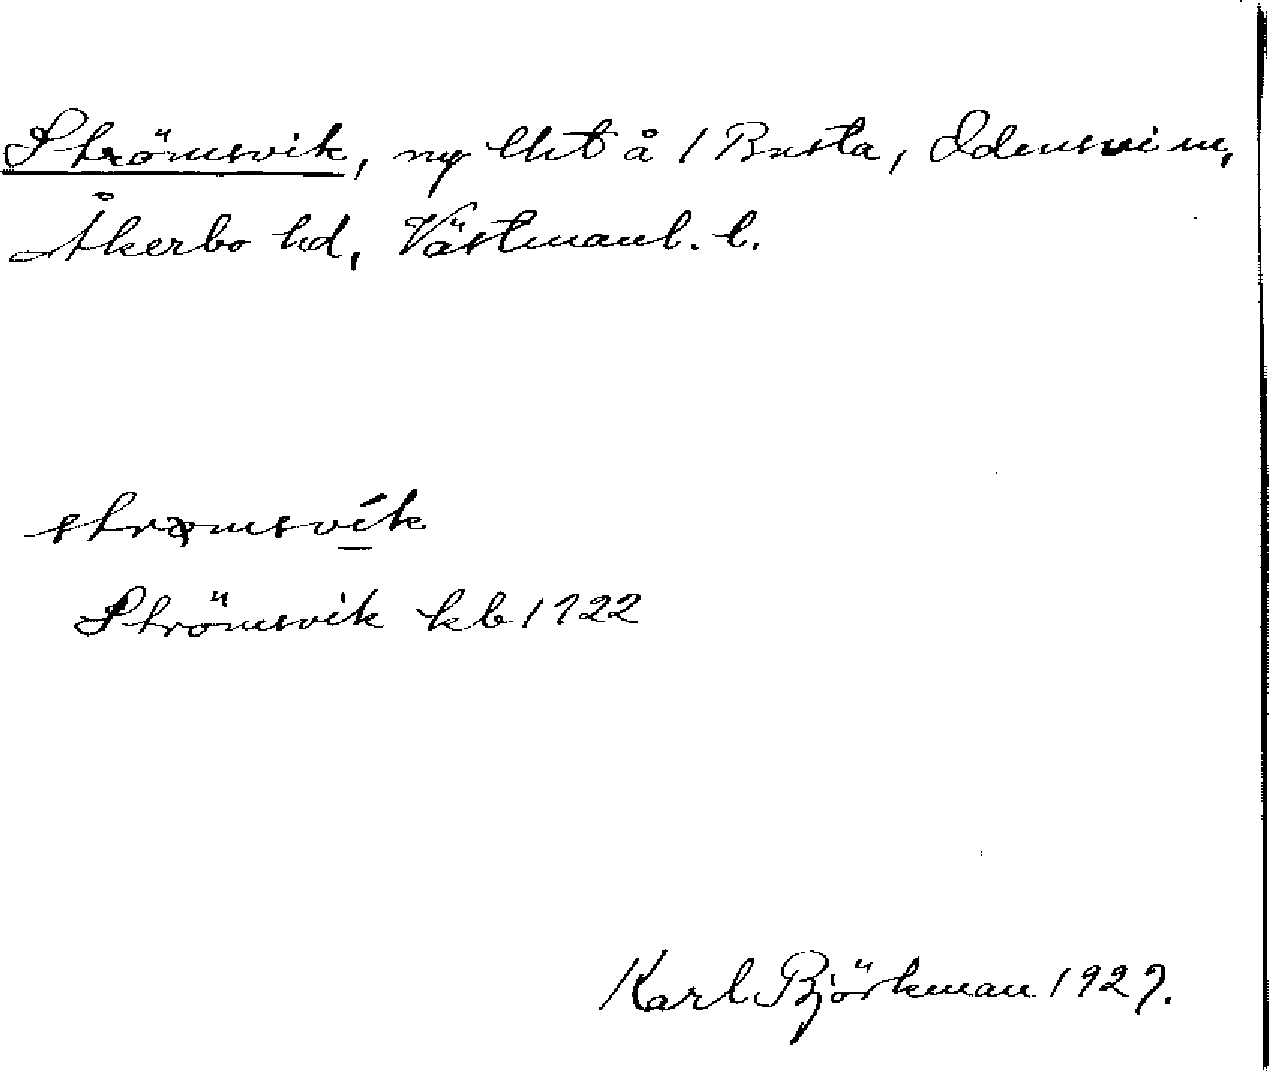 Strömsvik, ny lht å 1 Busta, Odensvi sn,
Åkerbo hd, Västmanl. l.
strømsvík
Strömsvik kb 1722
Karl Björkman 1927.